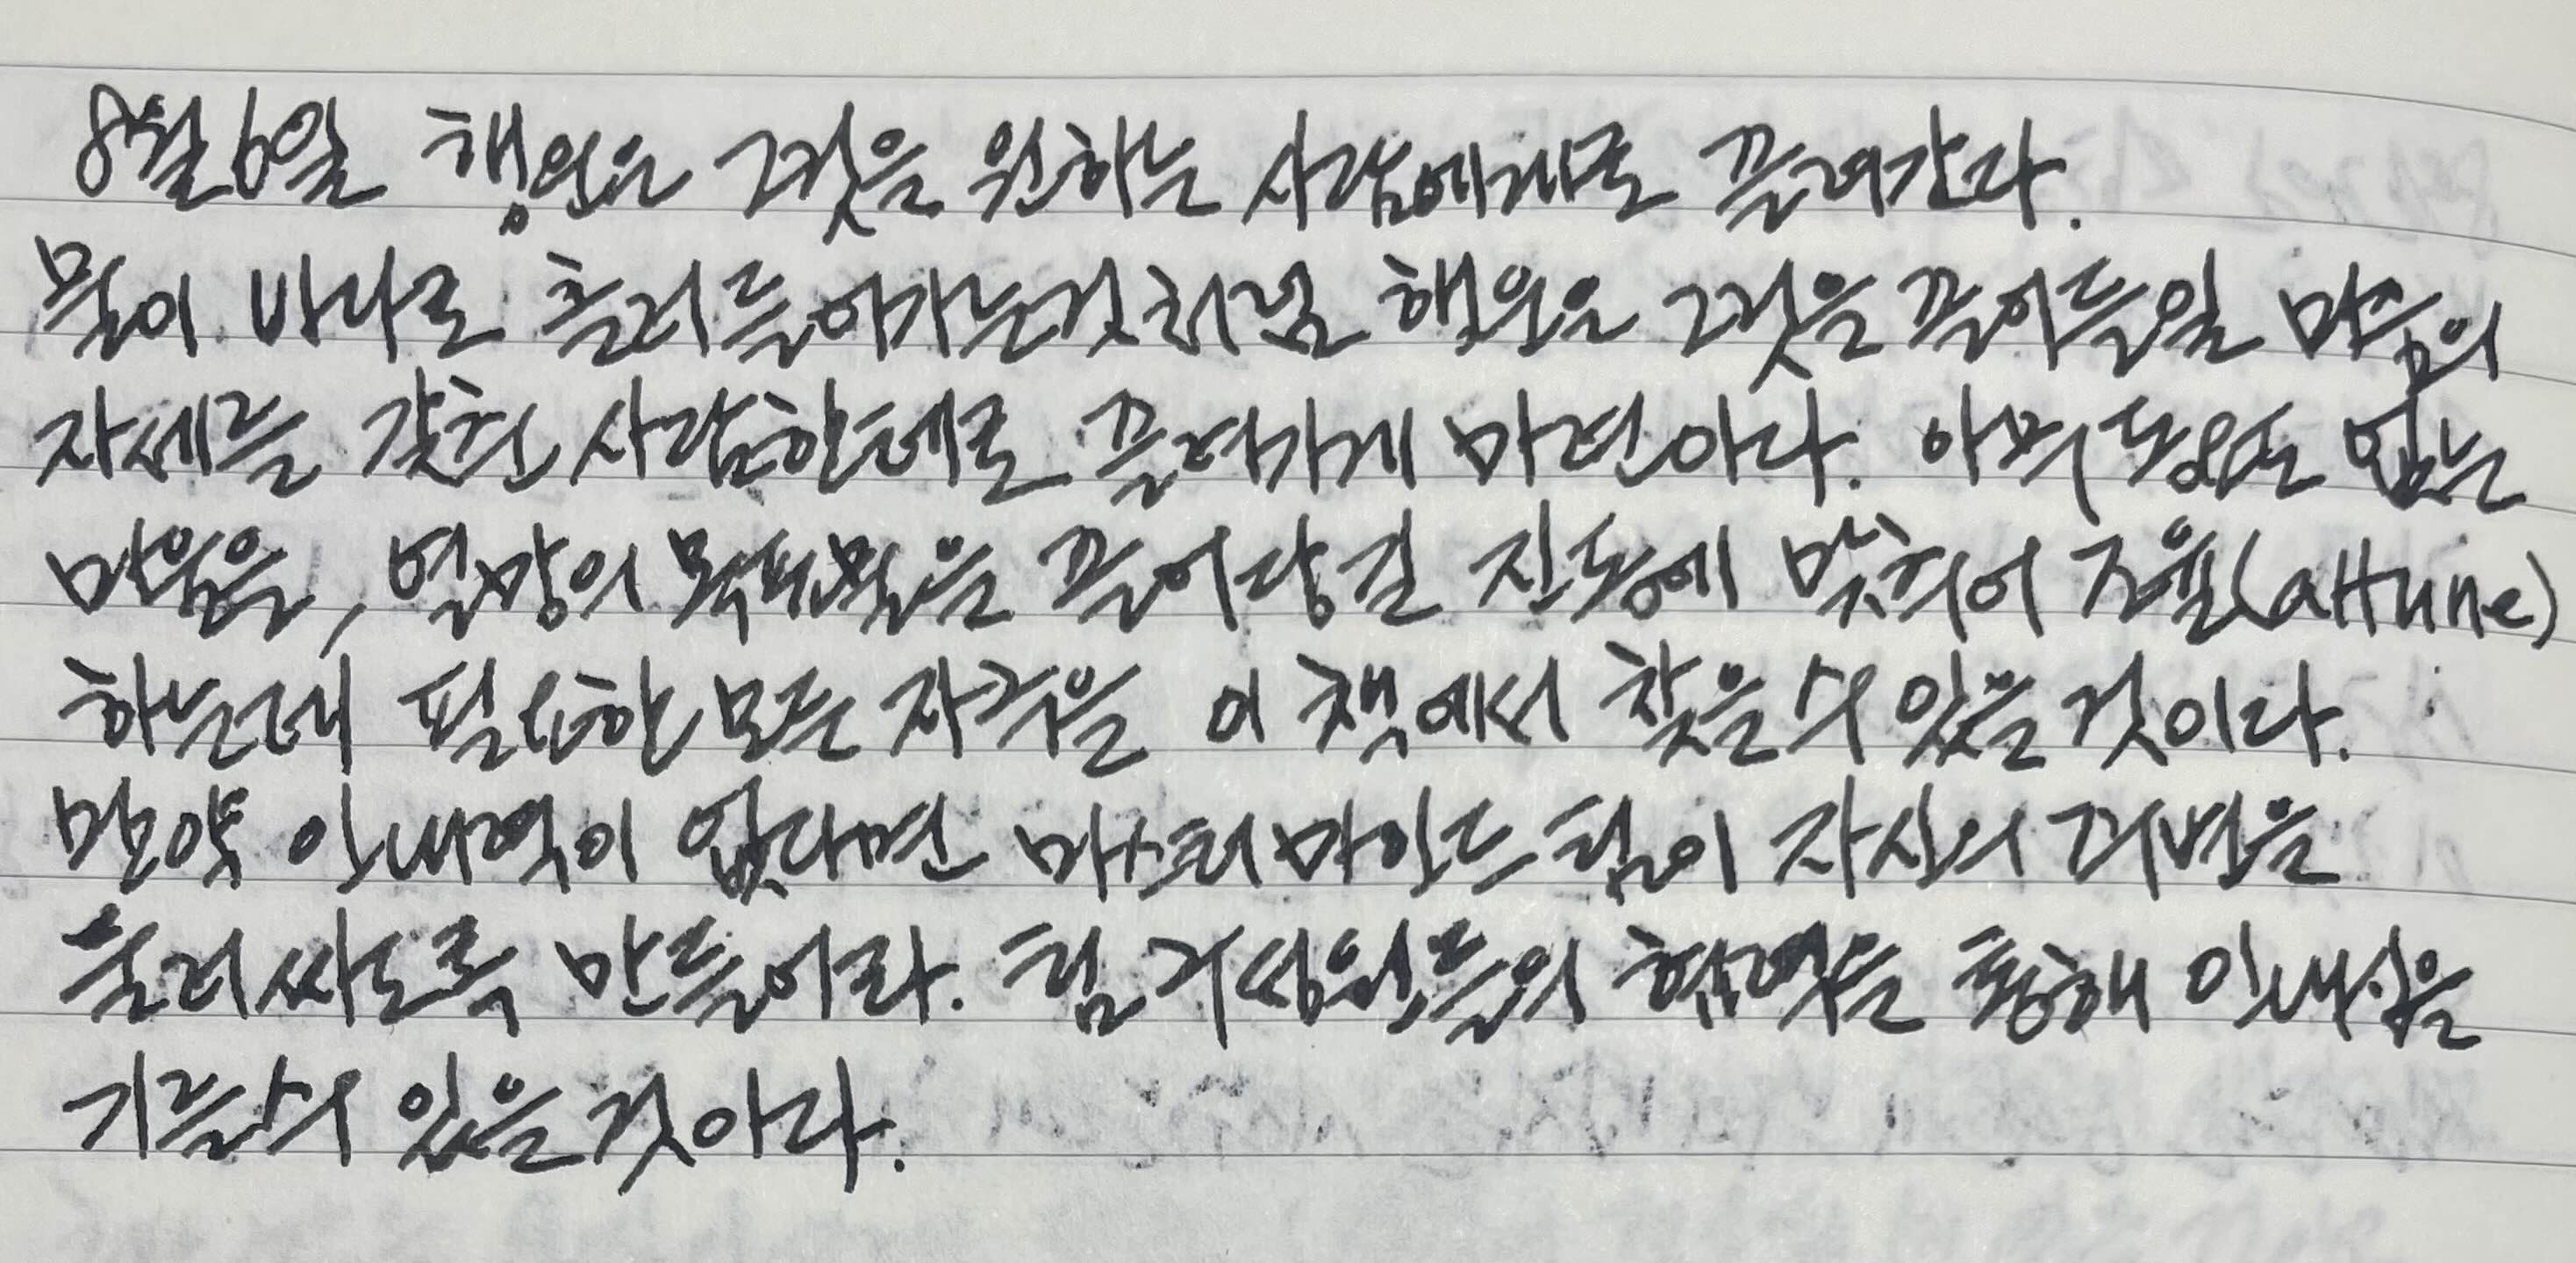 8월6일 행운은 그것을 원하는 사람에게로 끌려간다.
물이 바다로 흘러들어가는것처럼 행운은 그것을 끌어들일 마음의
자세를 갖춘 사람한테로 끌려가게 마련이다. 아직 동요도 없는
마음을, 열망의 목표물을 끌어당길 진동에 맞추어 조율(attune)
하는데 필요한 모든 자극을 이 책에서 찾을수 있을 것이다.
만약 인내력이 없다면 마스터 마인드 팀이 자신의 주변을
둘러싸도록 만들어라. 팀 구성원들의 협력을 통해 인내심을
기를수 있을 것이다.